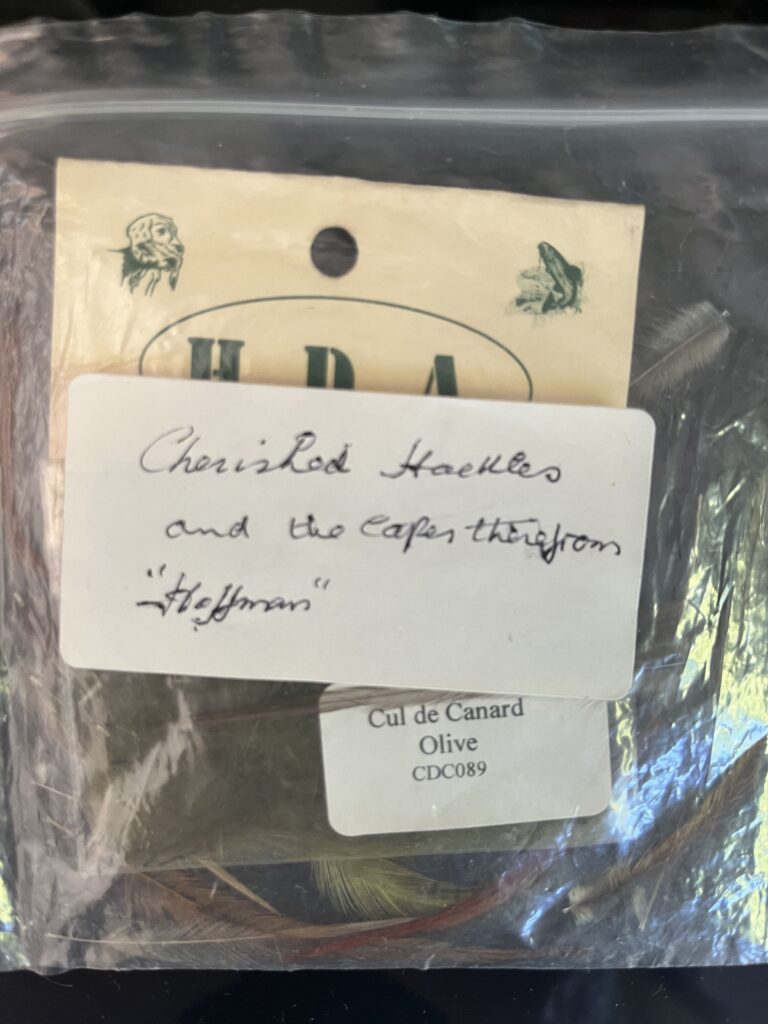 H D A
Cherished Hackles
and the Capes therefrom
"Hoffman"
Cul de Canard
Olive
CDC089